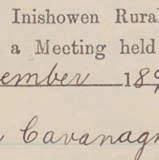 Inishowen Rural
a Meeting held
ember 189
Cavanagh